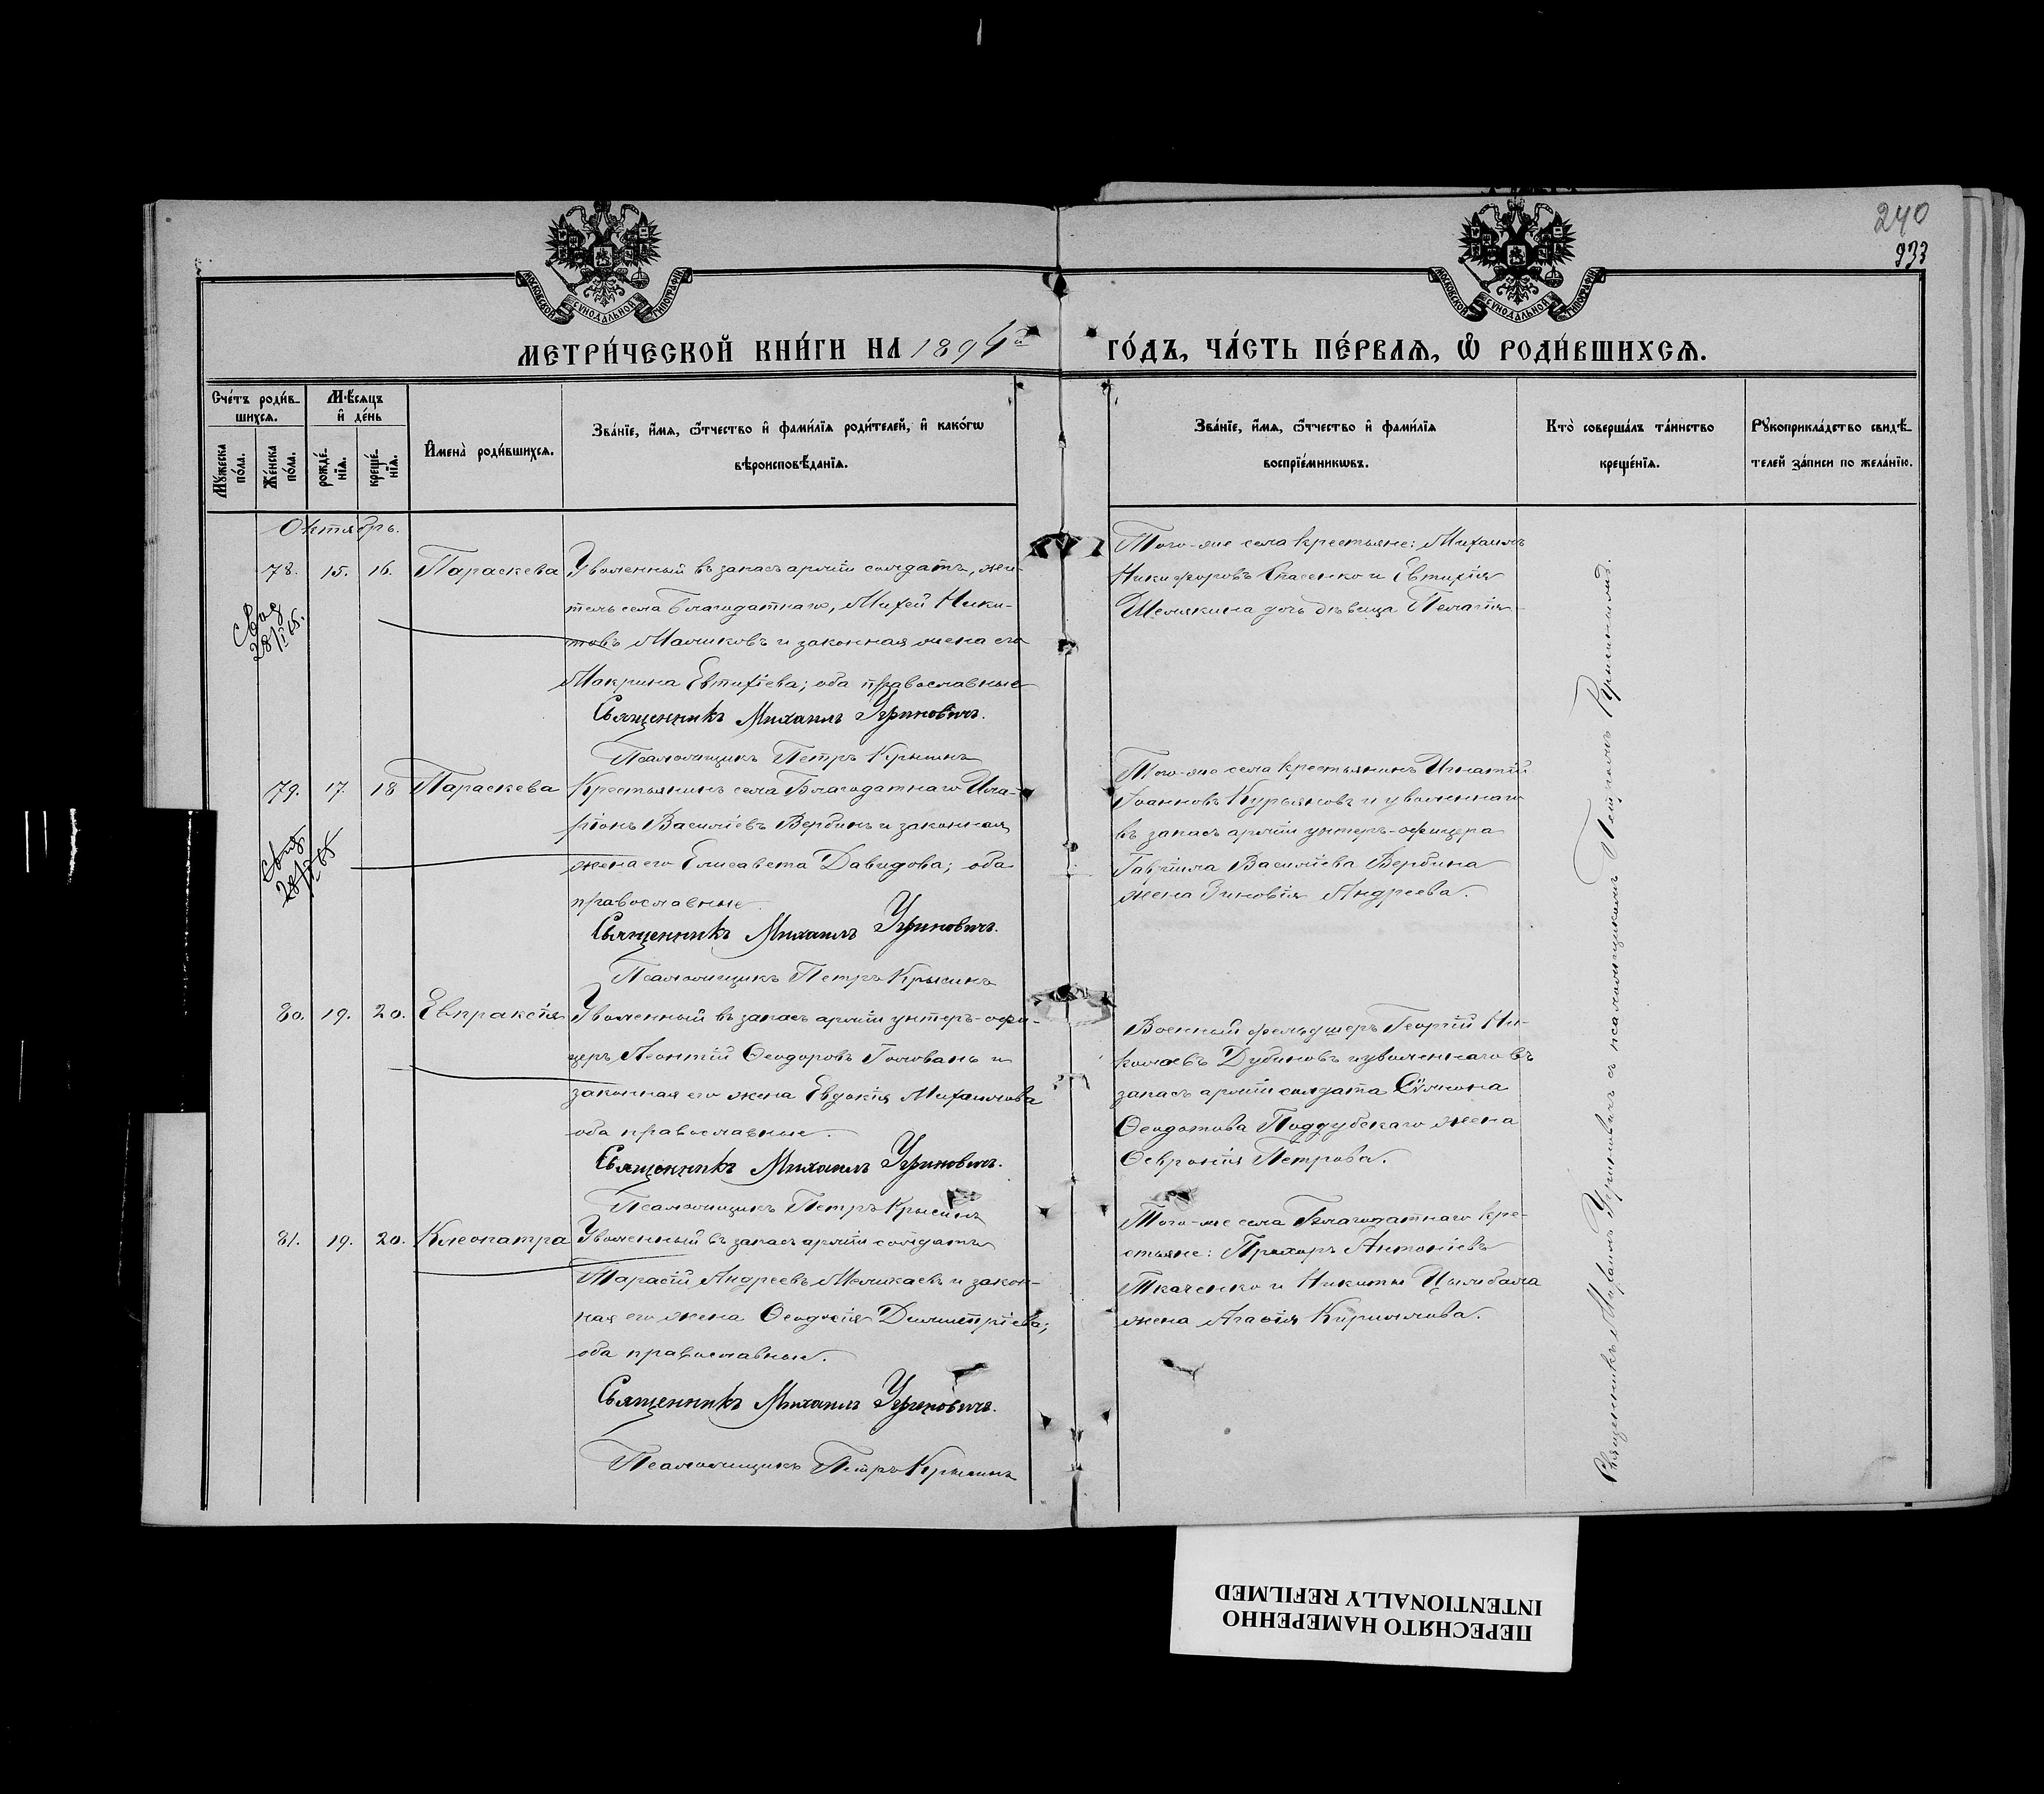 240
933
МОСКОВСКОЙ СУНОДАЛЬНОЙ ТИПОГРАФІИ
МОСКОВСКОЙ СУНОДАЛЬНОЙ ТИПОГРАФІИ
МЕТРИ́ЧЕСКОЙ КНИ́ГИ НА 1894й ГО́ДЪ, ЧА́СТЬ ПЕ́РВАѦ, Ѡ РОДИ́ВШИХСѦ.
Сче́тъ роди́в-
шихсѧ.
Мꙋ́жеска по́ла.
Же́нска по́ла.
Мѣ́сѧцъ
и҆ де́нь
рожде́-
нїѧ.
креще́-
нїѧ.
И҆мена̀ роди́вшихсѧ.
Зва́нїе, и҆́мѧ, ѻ҆́тчество и҆ фами́лїѧ роди́телей, и҆ како́гѡ
вѣроисповѣ́данїѧ.
Зва́нїе, и҆́мѧ, ѻ҆́тчество и҆ фами́лїѧ
воспрїе́мникѡвъ.
Кто̀ соверша́лъ та́инство
креще́нїѧ.
Рꙋкоприкла́дство свидѣ́-
телей за́писи по жела́нїю.
Октябрь.
78. 15. 16. Параскева
Уволенный въ запасъ арміи солдатъ, жи-
тель села Благодатнаго, Михей Ники-
товъ Маликовъ и законная жена его
Макрина Евтихіева; оба православные
Священникъ Михаилъ Угриновичъ.
Псаломщикъ Петръ Крысинъ
Того-же села крестьяне: Михаилъ
Никифоровъ Спасенко и Евтихія
Шелякина дочь дѣвица Пелагія
28/X 65.
79. 17. 18 Параскева
Крестьянинъ села Благодатнаго Ила-
ріонъ Василіевъ Вербинъ и законная
жена его Елисавета Давидова; оба
православные
Священникъ Михаилъ Угриновичъ.
Псаломщикъ Петръ Крысинъ
Того-же села крестьянинъ Игнатій
Іоанновъ Курьяновъ и уволеннаго
въ запасъ арміи унтеръ-офицера
Гавріила Василіева Вербина
жена Зиновія Андреева.
80. 19. 20. Евпраксія
Уволенный въ запасъ арміи унтеръ-офи-
церъ Леонтій Ѳеодоровъ Головань и
законная его жена Евдокія Михаилова
оба православные.
Священникъ Михаилъ Угриновичъ.
Псаломщикъ Петръ Крысинъ
Военный фельдшеръ Георгій Ни-
колаевъ Дубиновъ и уволеннаго въ
запасъ арміи солдата Сѵмеона
Ѳеодотова Поддубскаго жена
Ѳевронія Петрова.
81. 19. 20. Клеопатра
Уволенный въ запасъ арміи солдатъ
Тарасій Андреевъ Меликаевъ и закон-
ная его жена Ѳеодосія Димитріева;
оба православные.
Священникъ Михаилъ Угриновичъ.
Псаломщикъ Петръ Крысинъ
Того-же села Благодатнаго кре-
стьяне: Прохоръ Антоніевъ
Ткаченко и Никиты Цымбала
жена Агафія Кириллова.
Священникъ Михаилъ Угриновичъ съ псаломщикомъ Петромъ Крысинымъ.
ПЕРЕСНЯТО НАМЕРЕННО
INTENTIONALLY REFILMED